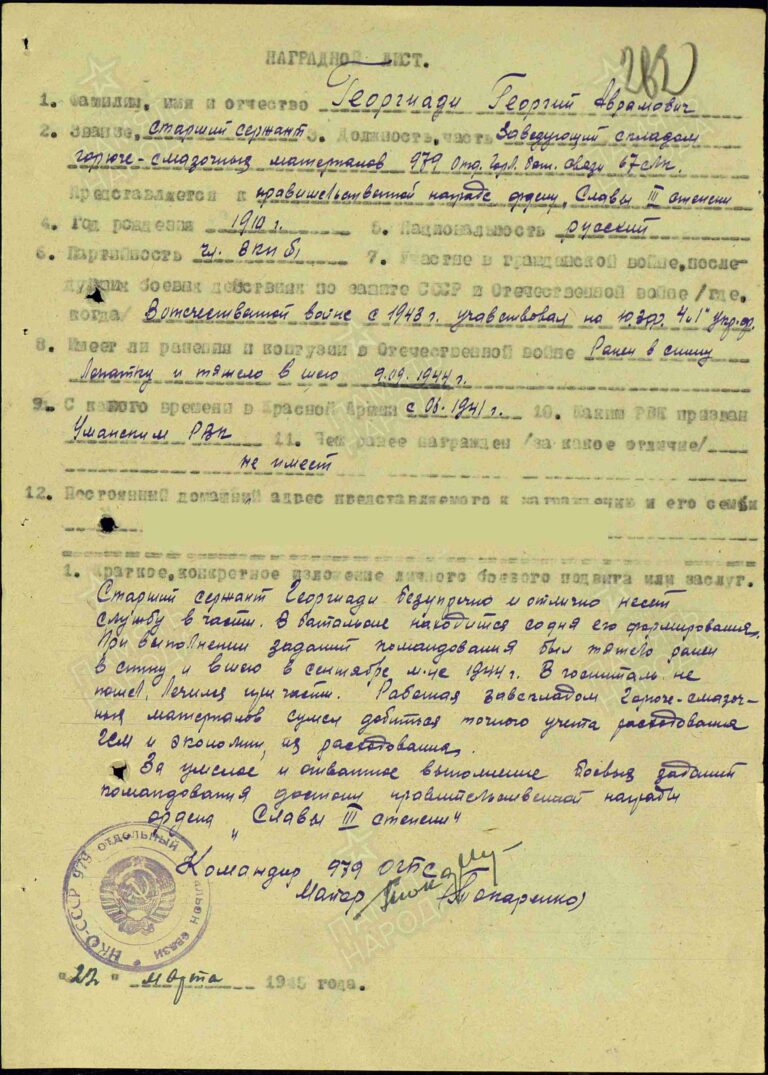 282
НАГРАДНОЙ ЛИСТ.
1. Фамилия, имя и отчество Георгиади Георгий Аврамович
2. Звание, старший сержант 3. Должность, часть Заведующий складом
горюче-смазочных материалов 979 Отд. Бат. связи 67 с.к.
Представляется к правительственной награде ордену "Славы III степени
4. Год рождения 1910 г. 5. Национальность русский
6. Партийность чл. ВКПб 7. Участие в гражданской войне, после-
дующих боевых действиях по защите СССР и Отечественной войне /где,
когда/ В отечественной войне с 1943 г. учавствовал на Ю.З.Ф. 4 и 1 Укр. фр.
8. Имеет ли ранения и контузии в Отечественной войне Ранен в спину
Лопатку и тяжело в шею 9.09.1944 г.
9. С какого времени в Красной Армии с 06.1941 г. 10. Каким РВК призван
Уманским РВК 11. Чем ранее награжден /за какое отличие/
не имеет
12. Постоянный домашний адрес представляемого к награждению и его семьи
1. Краткое, конкретное изложение личного боевого подвига или заслуг.
Старший сержант Георгиади безупречно и отлично несет
службу в части. В батальоне находится со дня его формирования.
При выполнении заданий командования был тяжело ранен
в спину и в шею в сентябре м-це 1944 г. В госпиталь не
пошел, лечился при части. Работая завскладом Горюче-смазоч-
ных материалов сумел добиться точного учета расходования
ГСМ и экономии, их расходования.
За умелое и отважное выполнение боевых заданий
командования достоин правительственной награды
ордена "Славы III степени"
Командир 979 ОБС
Майор (Токаренко)
НКО-СССР 979 ОТДЕЛЬНЫЙ БАТАЛЬОН СВЯЗИ
"22" марта 1945 года.
ПАМЯТЬ НАРОДА